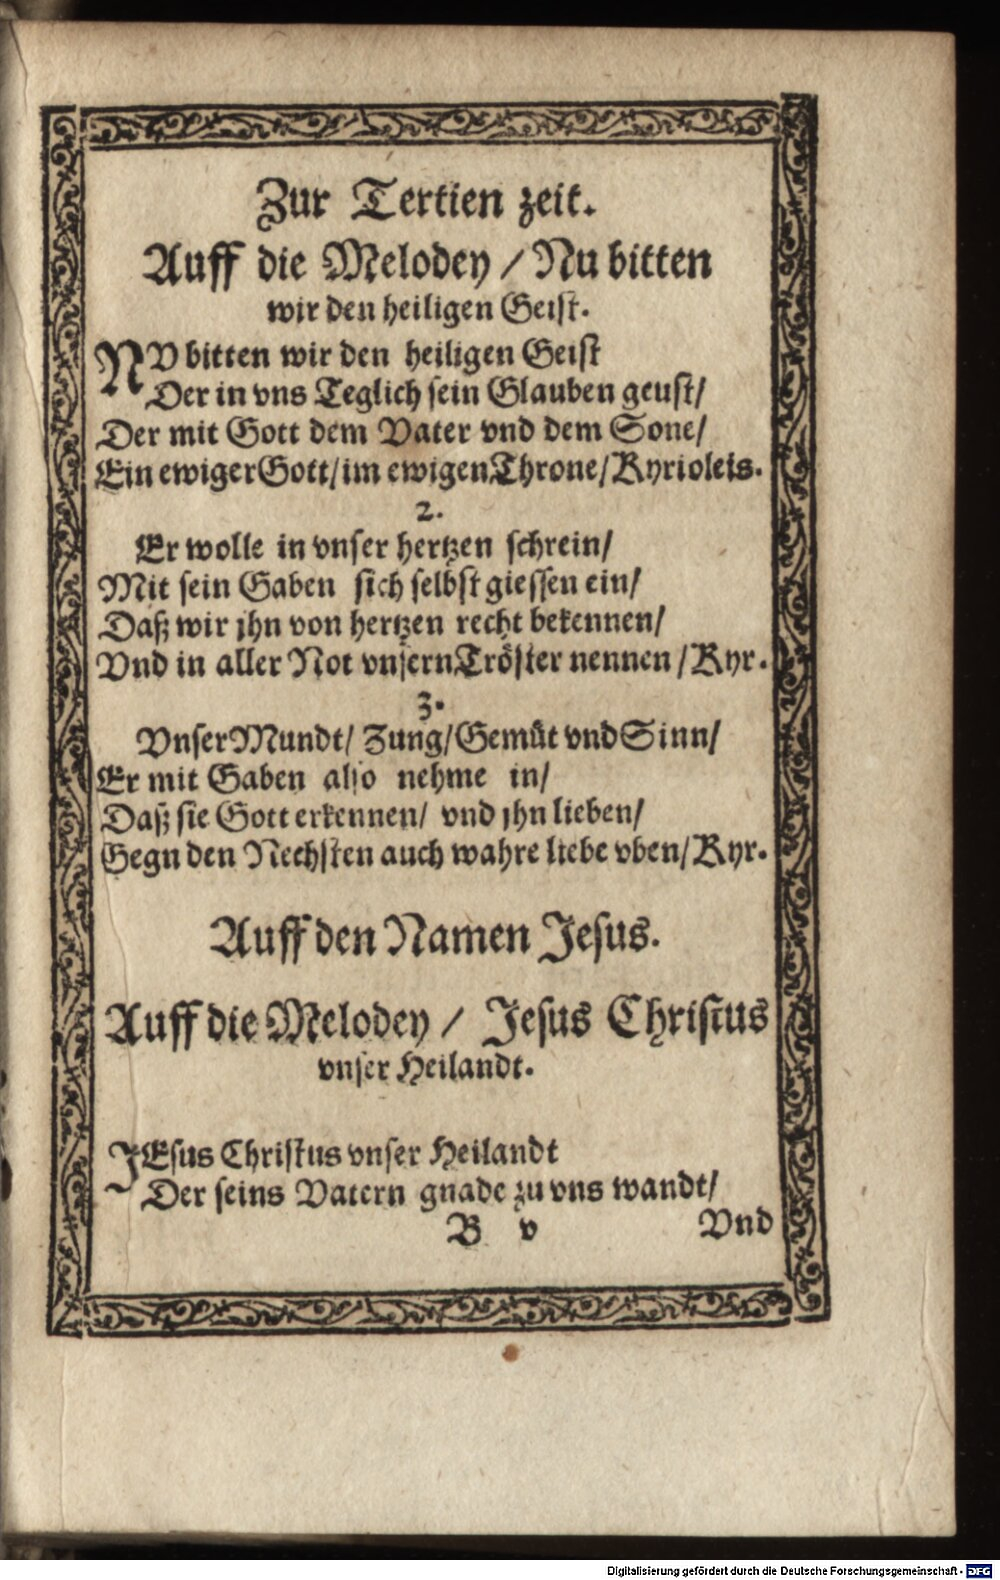 Zur Tertien zeit.
Auff die Melodey / Nu bitten
wir den heiligen Geist.
NV bitten wir den heiligen Geist
Der in vns Teglich sein Glauben geust/
Der mit Gott dem Vater vnd dem Sone/
Ein ewiger Gott/ im ewigen Throne/ Kyrioleis.
2.
Er wolle in vnser hertzen schrein/
Mit sein Gaben sich selbst giessen ein/
Daß wir jhn von hertzen recht bekennen/
Vnd in aller Not vnsern Tröster nennen / Kyr.
3.
Vnser Mundt/ Zung/ Gemüt vnd Sinn/
Er mit Gaben also nehme in/
Daß sie Gott erkennen/ vnd jhn lieben/
Gegn den Nechsten auch wahre liebe vben/ Kyr.
Auff den Namen Jesus.
Auff die Melodey / Jesus Christus
vnser Heilandt.
JEsus Christus vnser Heilandt
Der seins Vatern gnade zu vns wandt/
B v Vnd
Digitalisierung gefördert durch die Deutsche Forschungsgemeinschaft - DFG